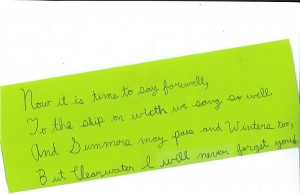 Now it is time to say farwell,
To the ship on wicth we sang so well
And Summers may pass and Winters too,
But Clearwater I will never forget you.